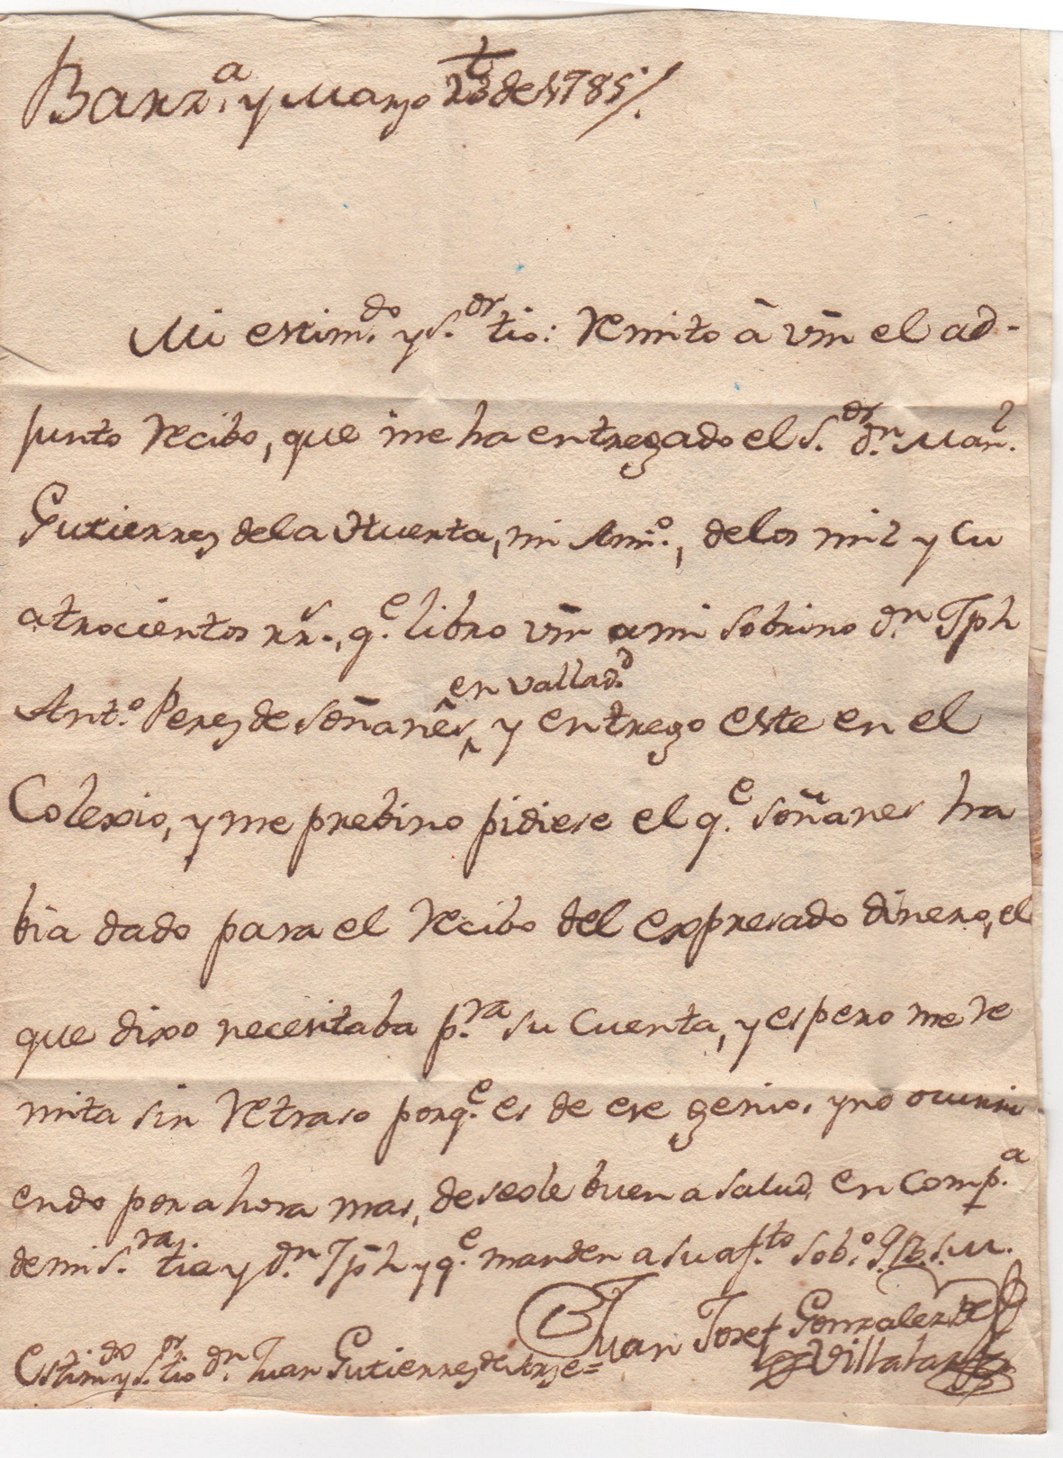 Barz.ª y Marzo 23 de 1785/.
Mi estim.do y S.or tio: Remito â Vm el ad-
junto recibo, que me ha entregado el S.or d.n Man.l
Gutierrez de la Huerta, mi Am.o, de los mil y cu
atrocientos rr.s, q.e libro Vm a mi sobrino d.n Jph
en Vallad.d
Ant.o Perez de Soñanes, y entrego este en el
Colexio, y me prebino pidiese el q.e Soñanes ha
bia dado para el recibo del expresado dinero, el
que dixo necesitaba p.ra su Cuenta, y espero me re
mita sin retraso porq.e es de ese genio, y no ocurri
endo por ahora mas, deseole buena salud, en comp.ª
de mi S.ra tia y d.n Jph y q.e manden a su af.to sob.o Q.S.M.B.
Juan Josef Gonzalez de
Villa
Estim.do y S.or tio d.n Juan Gutierrez de Arze=